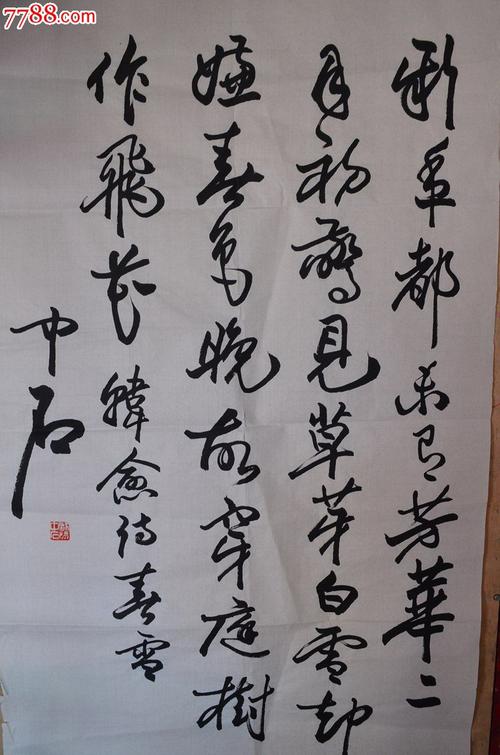 新年都未有芳華二
月初驚見草芽白雪却
嫌春色晚故穿庭樹
作飛花
韓愈詩春雪
中石
7788.com